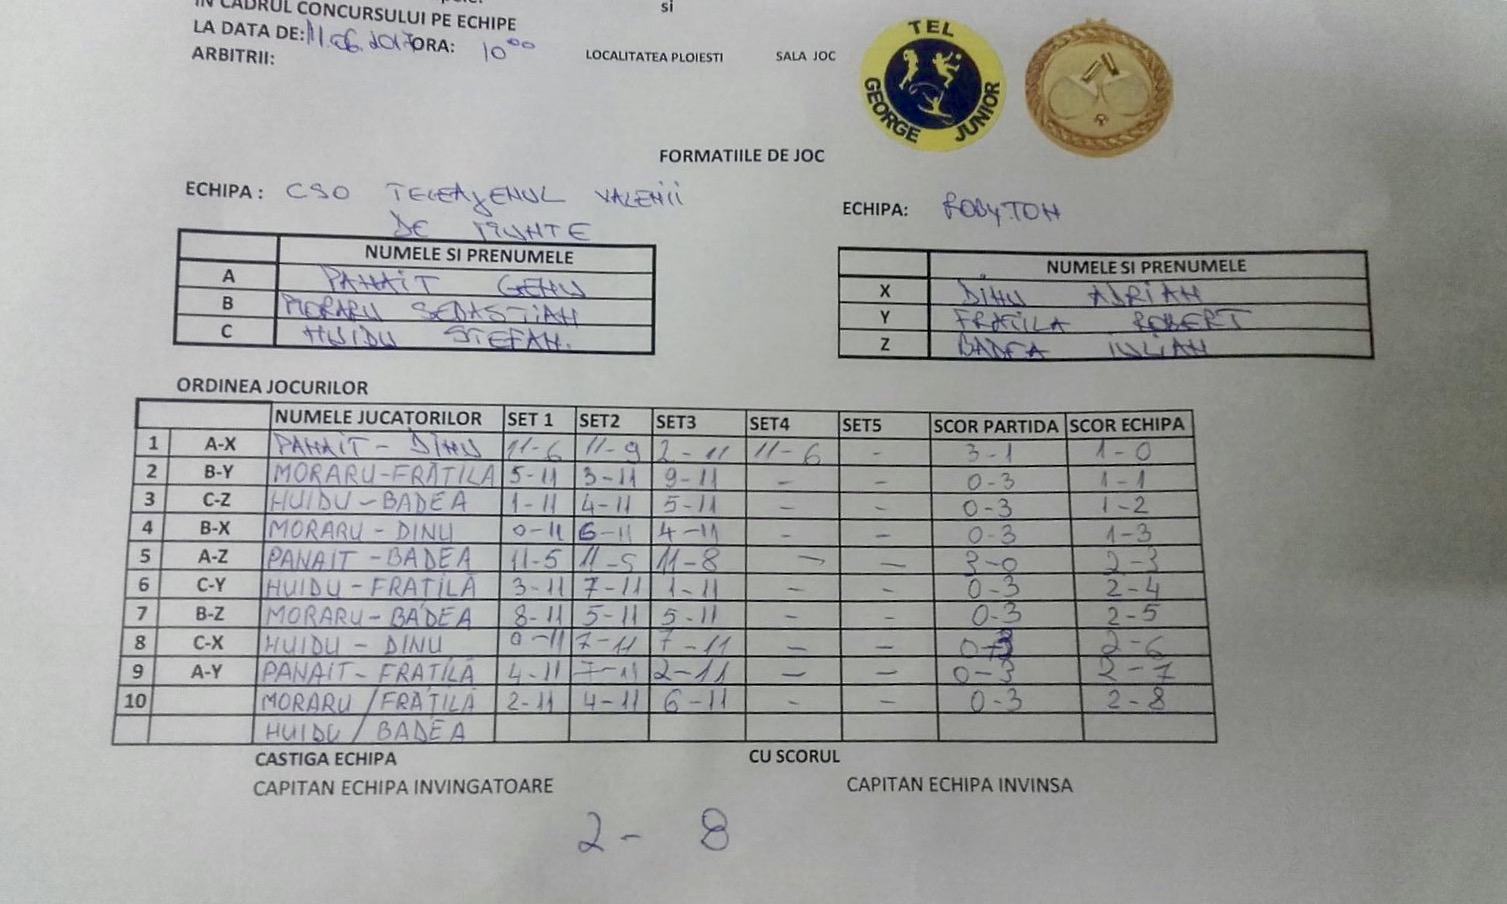 IN CADRUL CONCURSULUI PE ECHIPE
si
LA DATA DE: 11.06.2017 ORA: 10⁰⁰
ARBITRII:
LOCALITATEA PLOIESTI SALA JOC
TEL
GEORGE JUNIOR
FORMATIILE DE JOC
ECHIPA: CSO TELEAJENUL VALENII
DE MUNTE
ECHIPA: ROBYTON
NUMELE SI PRENUMELE
A PANAIT GENU
B MORARU SEBASTIAN
C HUIDU STEFAN.
NUMELE SI PRENUMELE
X DINU ADRIAN
Y FRATILA ROBERT
Z BADEA IULIAN
ORDINEA JOCURILOR
NUMELE JUCATORILOR SET 1 SET2 SET3 SET4 SET5 SCOR PARTIDA SCOR ECHIPA
1 A-X PANAIT - DINU 11-6 11-9 2-11 11-6 - 3-1 1-0
2 B-Y MORARU-FRĂTILĂ 5-11 3-11 9-11 - - 0-3 1-1
3 C-Z HUIDU-BADEA 1-11 4-11 5-11 - - 0-3 1-2
4 B-X MORARU - DINU 0-11 6-11 4-11 - - 0-3 1-3
5 A-Z PANAIT-BADEA 11-5 11-5 11-8 - - 3-0 2-3
6 C-Y HUIDU-FRATILĂ 3-11 7-11 1-11 - - 0-3 2-4
7 B-Z MORARU-BADEA 8-11 5-11 5-11 - - 0-3 2-5
8 C-X HUIDU - DINU 0-11 7-11 7-11 - - 0-3 2-6
9 A-Y PANAIT-FRATILĂ 4-11 7-11 2-11 - - 0-3 2-7
10 MORARU/FRĂTILĂ 2-11 4-11 6-11 - - 0-3 2-8
HUIDU/BADEA
CASTIGA ECHIPA CU SCORUL
CAPITAN ECHIPA INVINGATOARE CAPITAN ECHIPA INVINSA
2 - 8